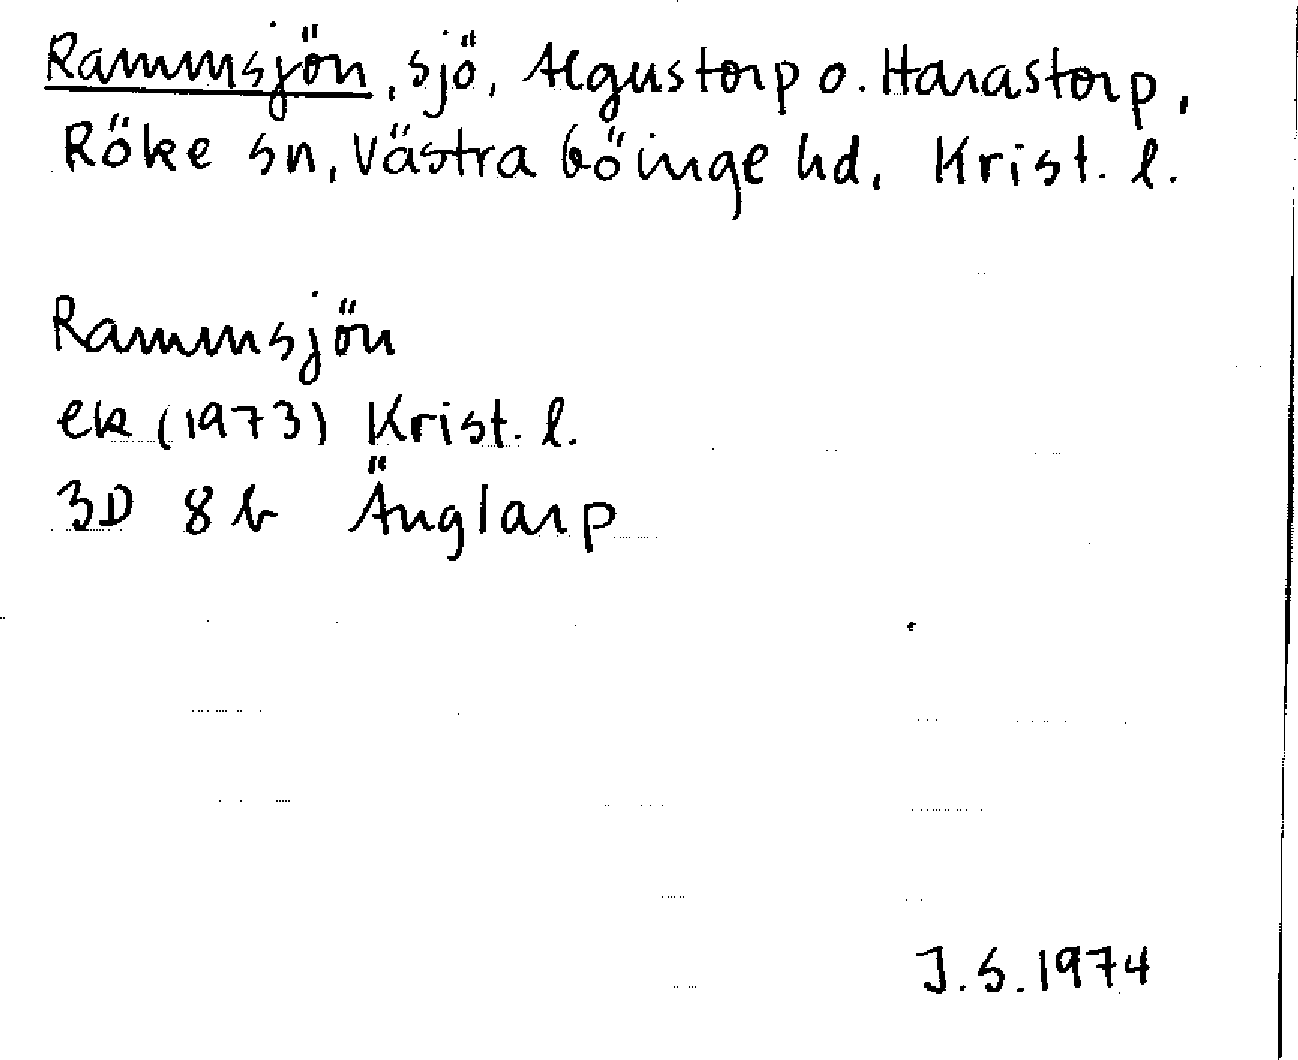 Rammsjön, sjö, Algustorp o. Harastorp,
Röke sn, Västra Göinge hd, Krist. l.
Rammsjön
ek (1973) Krist. l.
3D 8 b Änglarp
J.S. 1974